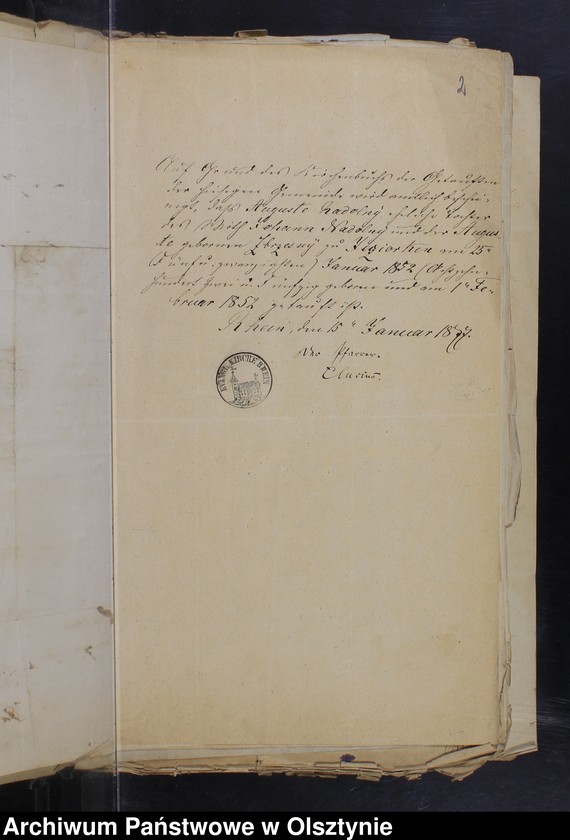 2
Auf Grund des Kirchenbuchs der Getauften
der hiesigen Gemeinde wird amtlich beschei-
nigt, daß Auguste Nadolny eheliche Tochter
des Wirth Johann Nadolny und der Augus-
te gebornen Zbrzesny zu Jeziorken am 25ⁿ
(Fünfundzwanzigsten) Januar 1852 (Achtzehn-
hundert zwei und funfzig) geboren und am 1ⁿ Fe-
bruar 1852 getauft ist.
Rhein, den 15ⁿ Januar 1877.
Der Pfarrer.
EVANGL. KIRCHE RHEIN
Archiwum Państwowe w Olsztynie